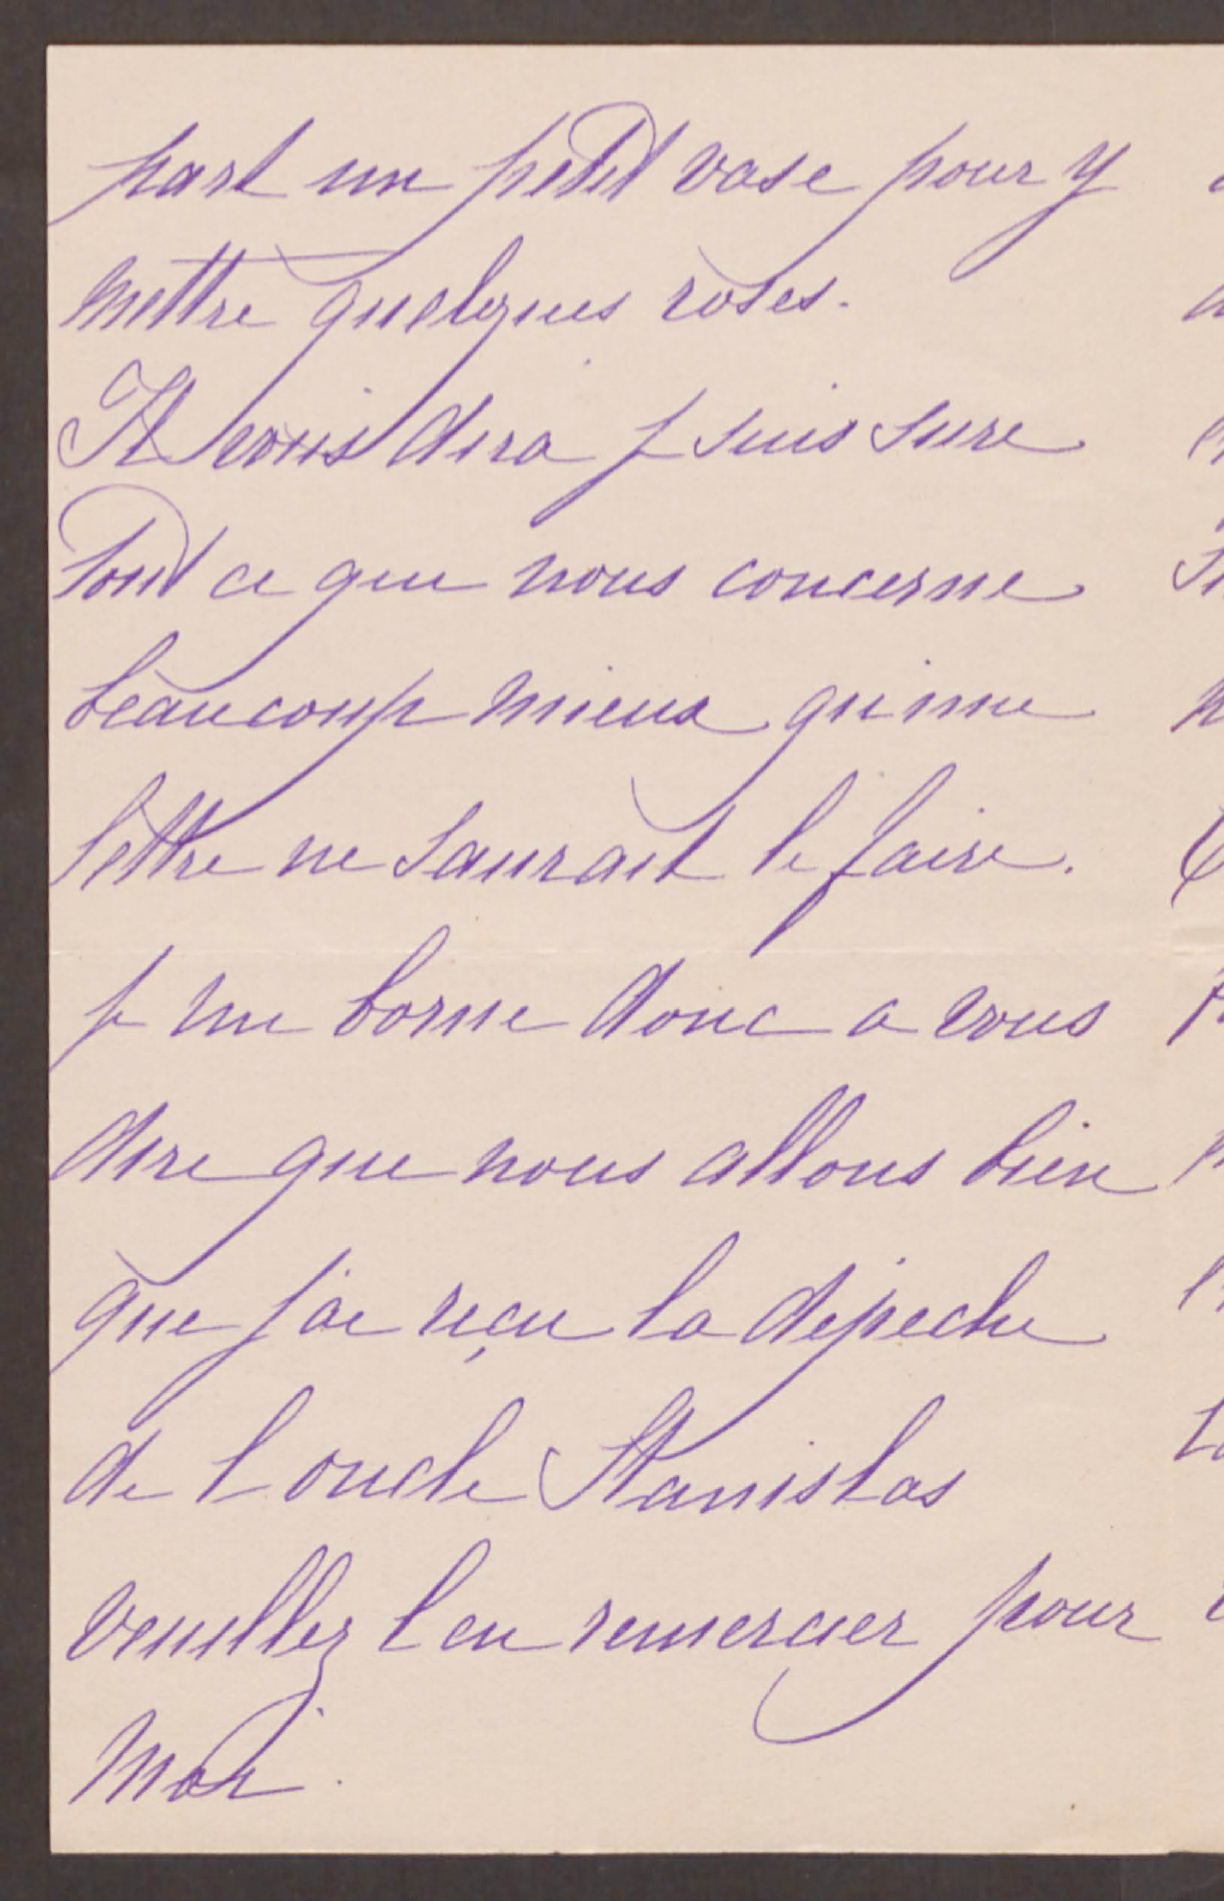 part un petit vase pour y
mettre quelques roses.
Il vous dira je suis sure
Tout ce que nous concerne
beaucoup mieux qu'une
lettre ne saurait le faire.
je me borne donc a vous
dire que nous allons bien
que j'ai reçu la depeche
de l oncle Stanislas
veuillez l en remercier pour
moi.